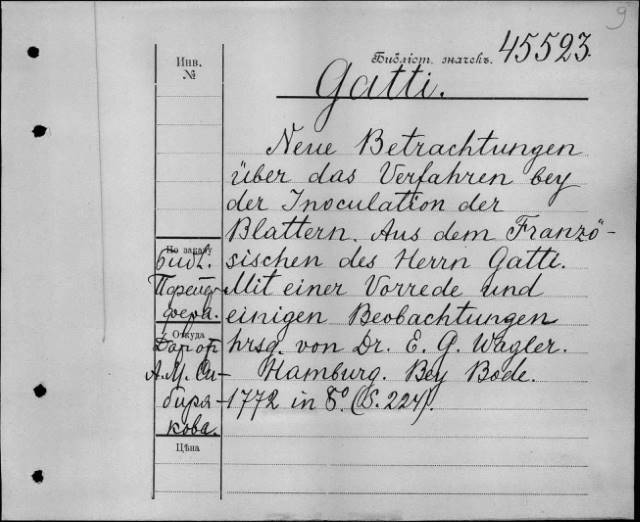 9
Инв.
№
Библіот. значекъ. 45523.
Gatti.
Neue Betrachtungen
über das Verfahren bey
der Inoculation der
Blattern. Aus dem Franzö-
sischen des Herrn Gatti.
Mit einer Vorrede und
einigen Beobachtungen
hrsg. von Dr. E. G. Wagler.
Hamburg. Bey Bode.
1772 in 8º. (S. 224).
По заказу
Библ.
фера.
Откуда
Дар от
А. М. Си-
биря-
кова.
Цѣна